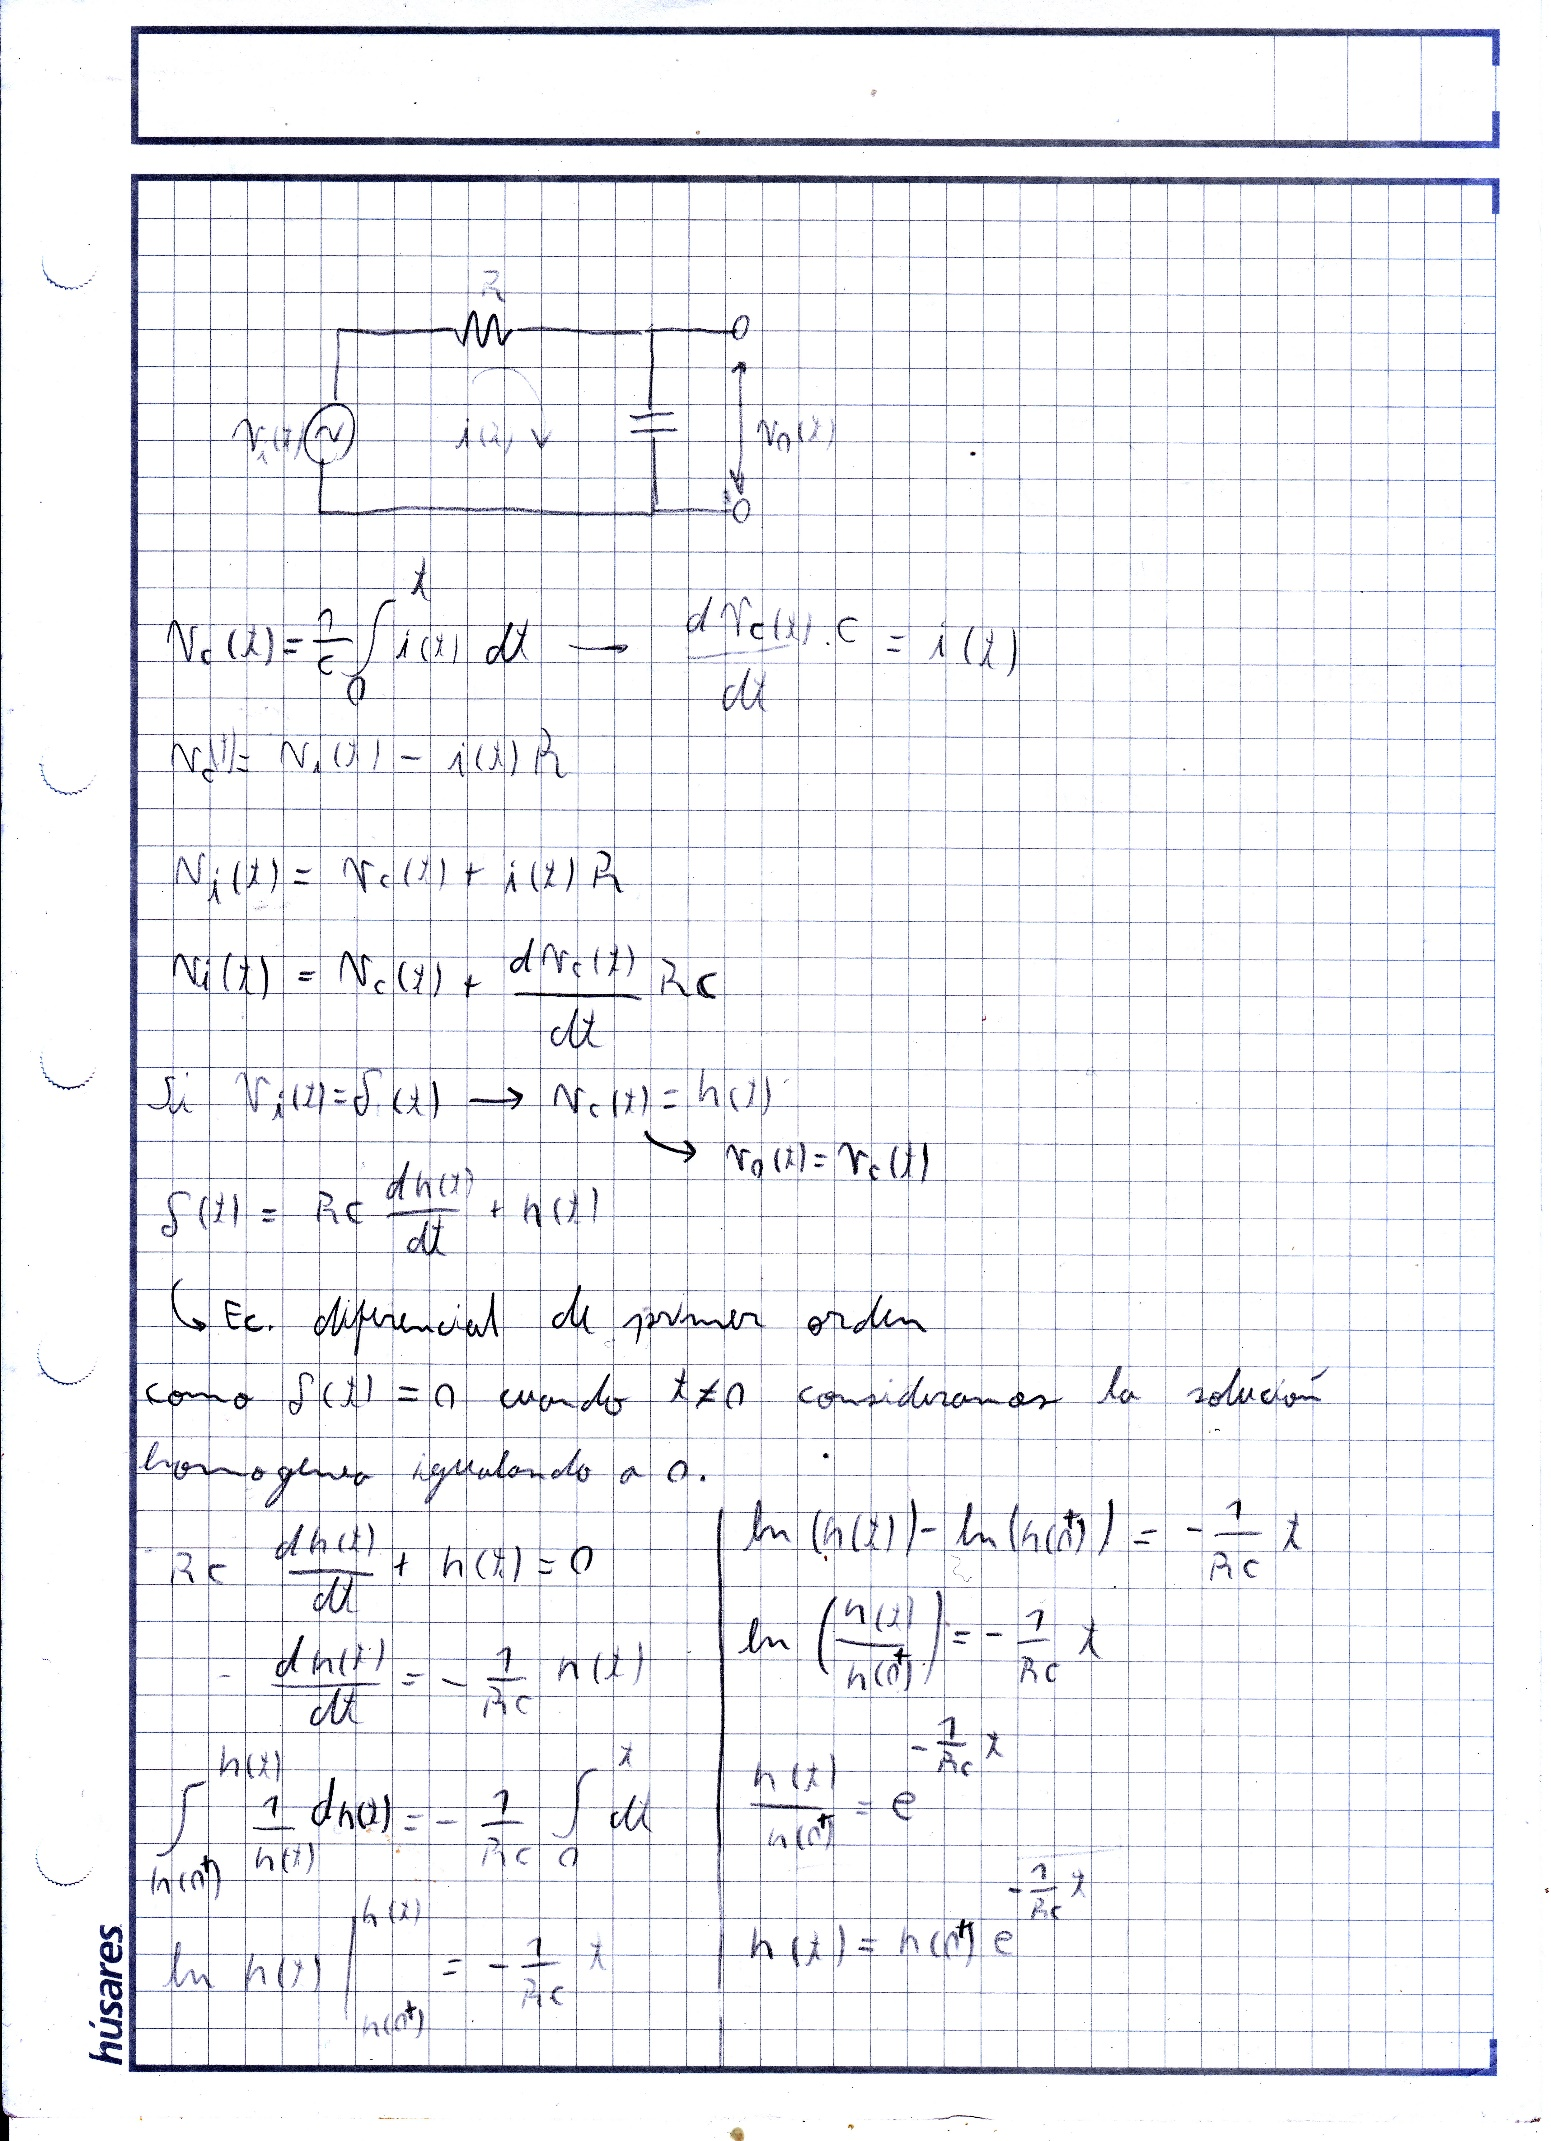 R
Vi(t)
i(t)
V0(t)
Vc(t) = 1/C ∫0^t i(t) dt → dVc(t)/dt . C = i(t)
Vc(t) = Vi(t) - i(t) R
Vi(t) = Vc(t) + i(t) R
Vi(t) = Vc(t) + dVc(t)/dt RC
Si Vi(t) = δ(t) → Vc(t) = h(t)
↘ V0(t) = Vc(t)
δ(t) = RC dh(t)/dt + h(t)
↳ Ec. diferencial de primer orden
como δ(t) = 0 cuando t ≠ 0 consideramos la solución
homogenea igualando a 0.
RC dh(t)/dt + h(t) = 0
dh(t)/dt = - 1/RC h(t)
∫h(0⁺)^h(t) 1/h(t) dh(t) = - 1/RC ∫0^t dt
ln h(t) |h(0⁺)^h(t) = - 1/RC t
ln (h(t)) - ln (h(0⁺)) = - 1/RC t
ln (h(t)/h(0⁺)) = - 1/RC t
h(t)/h(0⁺) = e^(- 1/RC t)
h(t) = h(0⁺) e^(- 1/RC t)
húsares